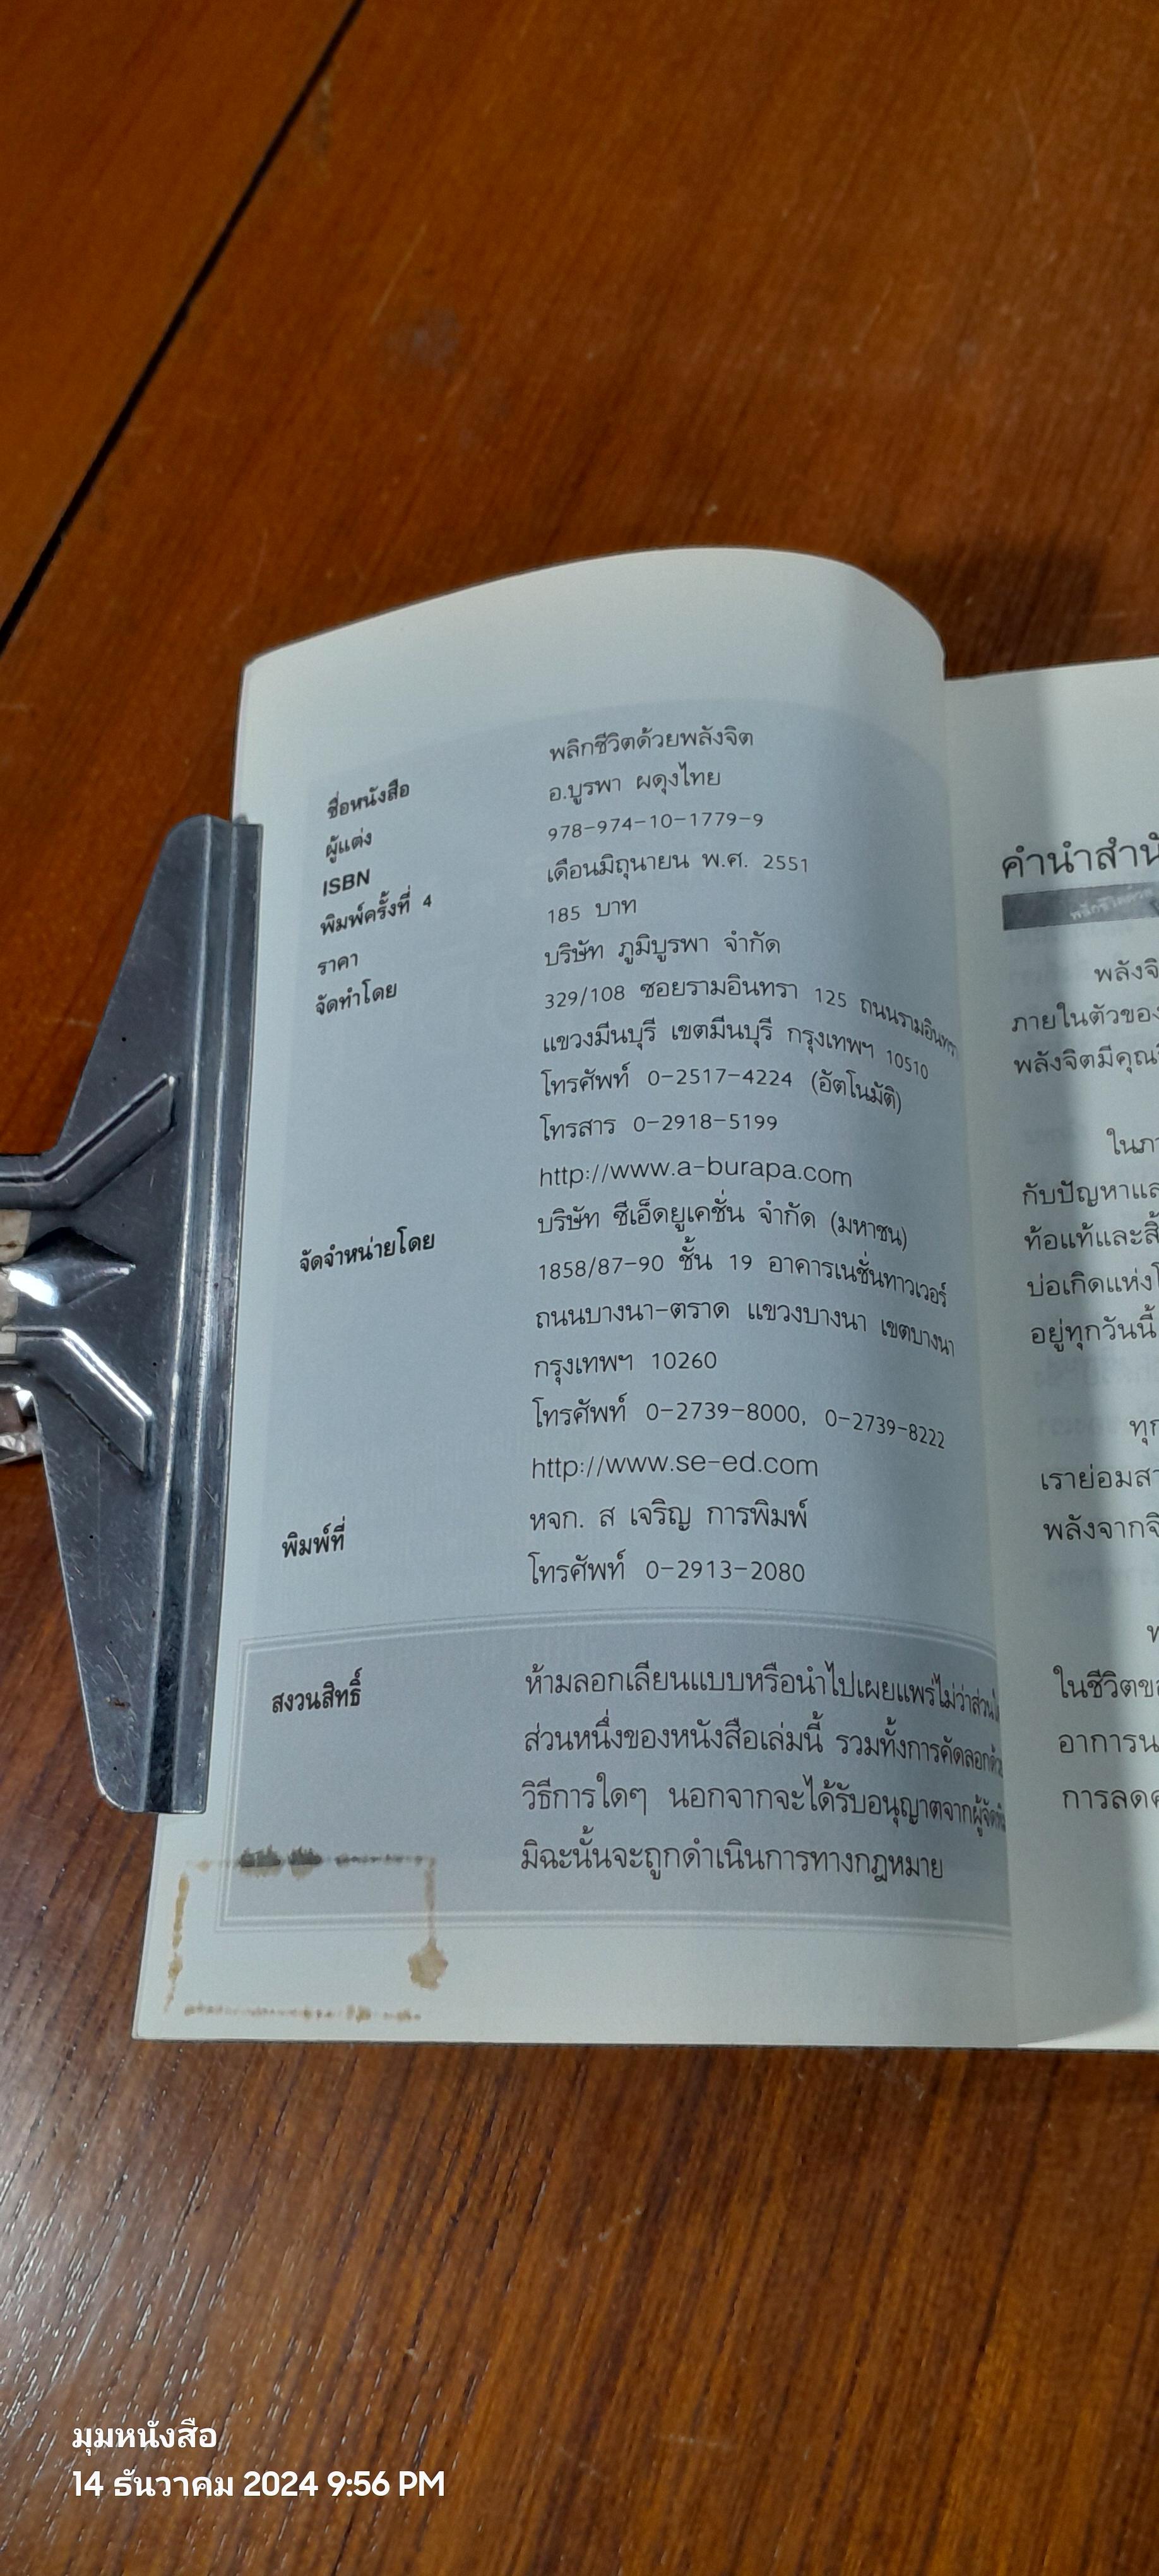 ชื่อหนังสือ พลิกชีวิตด้วยพลังจิต
ผู้แต่ง อ.บูรพา ผดุงไทย
ISBN 978-974-10-1779-9
พิมพ์ครั้งที่ 4 เดือนมิถุนายน พ.ศ. 2551
ราคา 185 บาท
จัดทำโดย บริษัท ภูมิบูรพา จำกัด
329/108 ซอยรามอินทรา 125 ถนนรามอินทรา
แขวงมีนบุรี เขตมีนบุรี กรุงเทพฯ 10510
โทรศัพท์ 0-2517-4224 (อัตโนมัติ)
โทรสาร 0-2918-5199
http://www.a-burapa.com
จัดจำหน่ายโดย บริษัท ซีเอ็ดยูเคชั่น จำกัด (มหาชน)
1858/87-90 ชั้น 19 อาคารเนชั่นทาวเวอร์
ถนนบางนา-ตราด แขวงบางนา เขตบางนา
กรุงเทพฯ 10260
โทรศัพท์ 0-2739-8000, 0-2739-8222
http://www.se-ed.com
พิมพ์ที่ หจก. ส เจริญ การพิมพ์
โทรศัพท์ 0-2913-2080
สงวนสิทธิ์ ห้ามลอกเลียนแบบหรือนำไปเผยแพร่ไม่ว่าส่วน
ส่วนหนึ่งของหนังสือเล่มนี้ รวมทั้งการคัดลอกด้วย
วิธีการใดๆ นอกจากจะได้รับอนุญาตจากผู้จัด
มิฉะนั้นจะถูกดำเนินการทางกฎหมาย
คำนำสำนั
พลังจิ
ภายในตัวของ
พลังจิตมีคุณ
ในภา
กับปัญหาแล
ท้อแท้และสิ้
บ่อเกิดแห่ง
อยู่ทุกวันนี้
ทุก
เราย่อมสา
พลังจากจิ
ในชีวิตข
อาการน
การลด
มุมหนังสือ
14 ธันวาคม 2024 9:56 PM